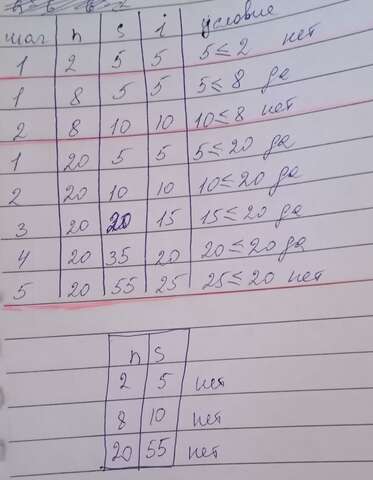 шаг n s i условие
1 2 5 5 5≤2 нет
1 8 5 5 5≤8 да
2 8 10 10 10≤8 нет
1 20 5 5 5≤20 да
2 20 10 10 10≤20 да
3 20 20 15 15≤20 да
4 20 35 20 20≤20 да
5 20 55 25 25≤20 нет
n s
2 5 нет
8 10 нет
20 55 нет